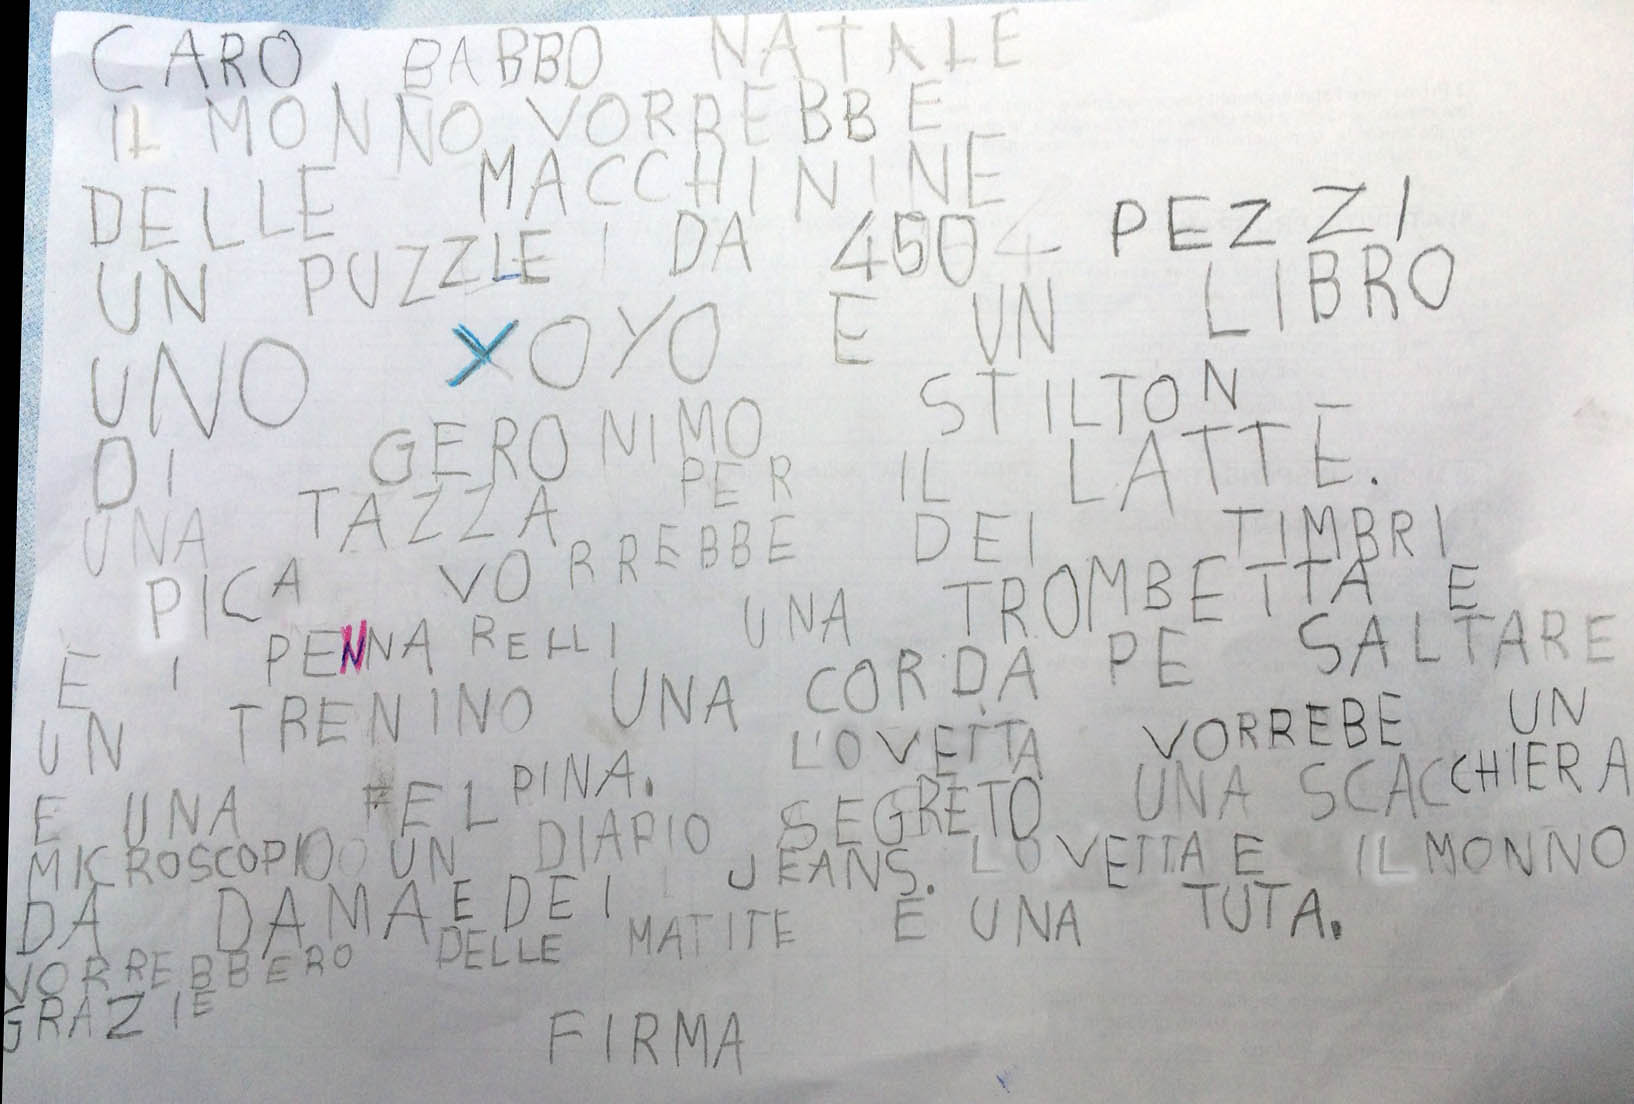 CARO BABBO NATALE
IL MONNO VORREBBE
DELLE MACCHININE
UN PUZZLE DA 450 PEZZI
UNO YOYO E UN LIBRO
DI GERONIMO STILTON
UNA TAZZA PER IL LATTE.
PICA VORREBBE DEI TIMBRI
E I PENNARELLI UNA TROMBETTA E
UN TRENINO UNA CORDA PE SALTARE
E UNA FELPINA. L'OVETTA VORREBE UN
MICROSCOPIO UN DIARIO SEGRETO UNA SCACCHIERA
DA DAMA E DEI JEANS. LOVETTA E IL MONNO
VORREBBERO DELLE MATITE E UNA TUTA.
GRAZIE
FIRMA